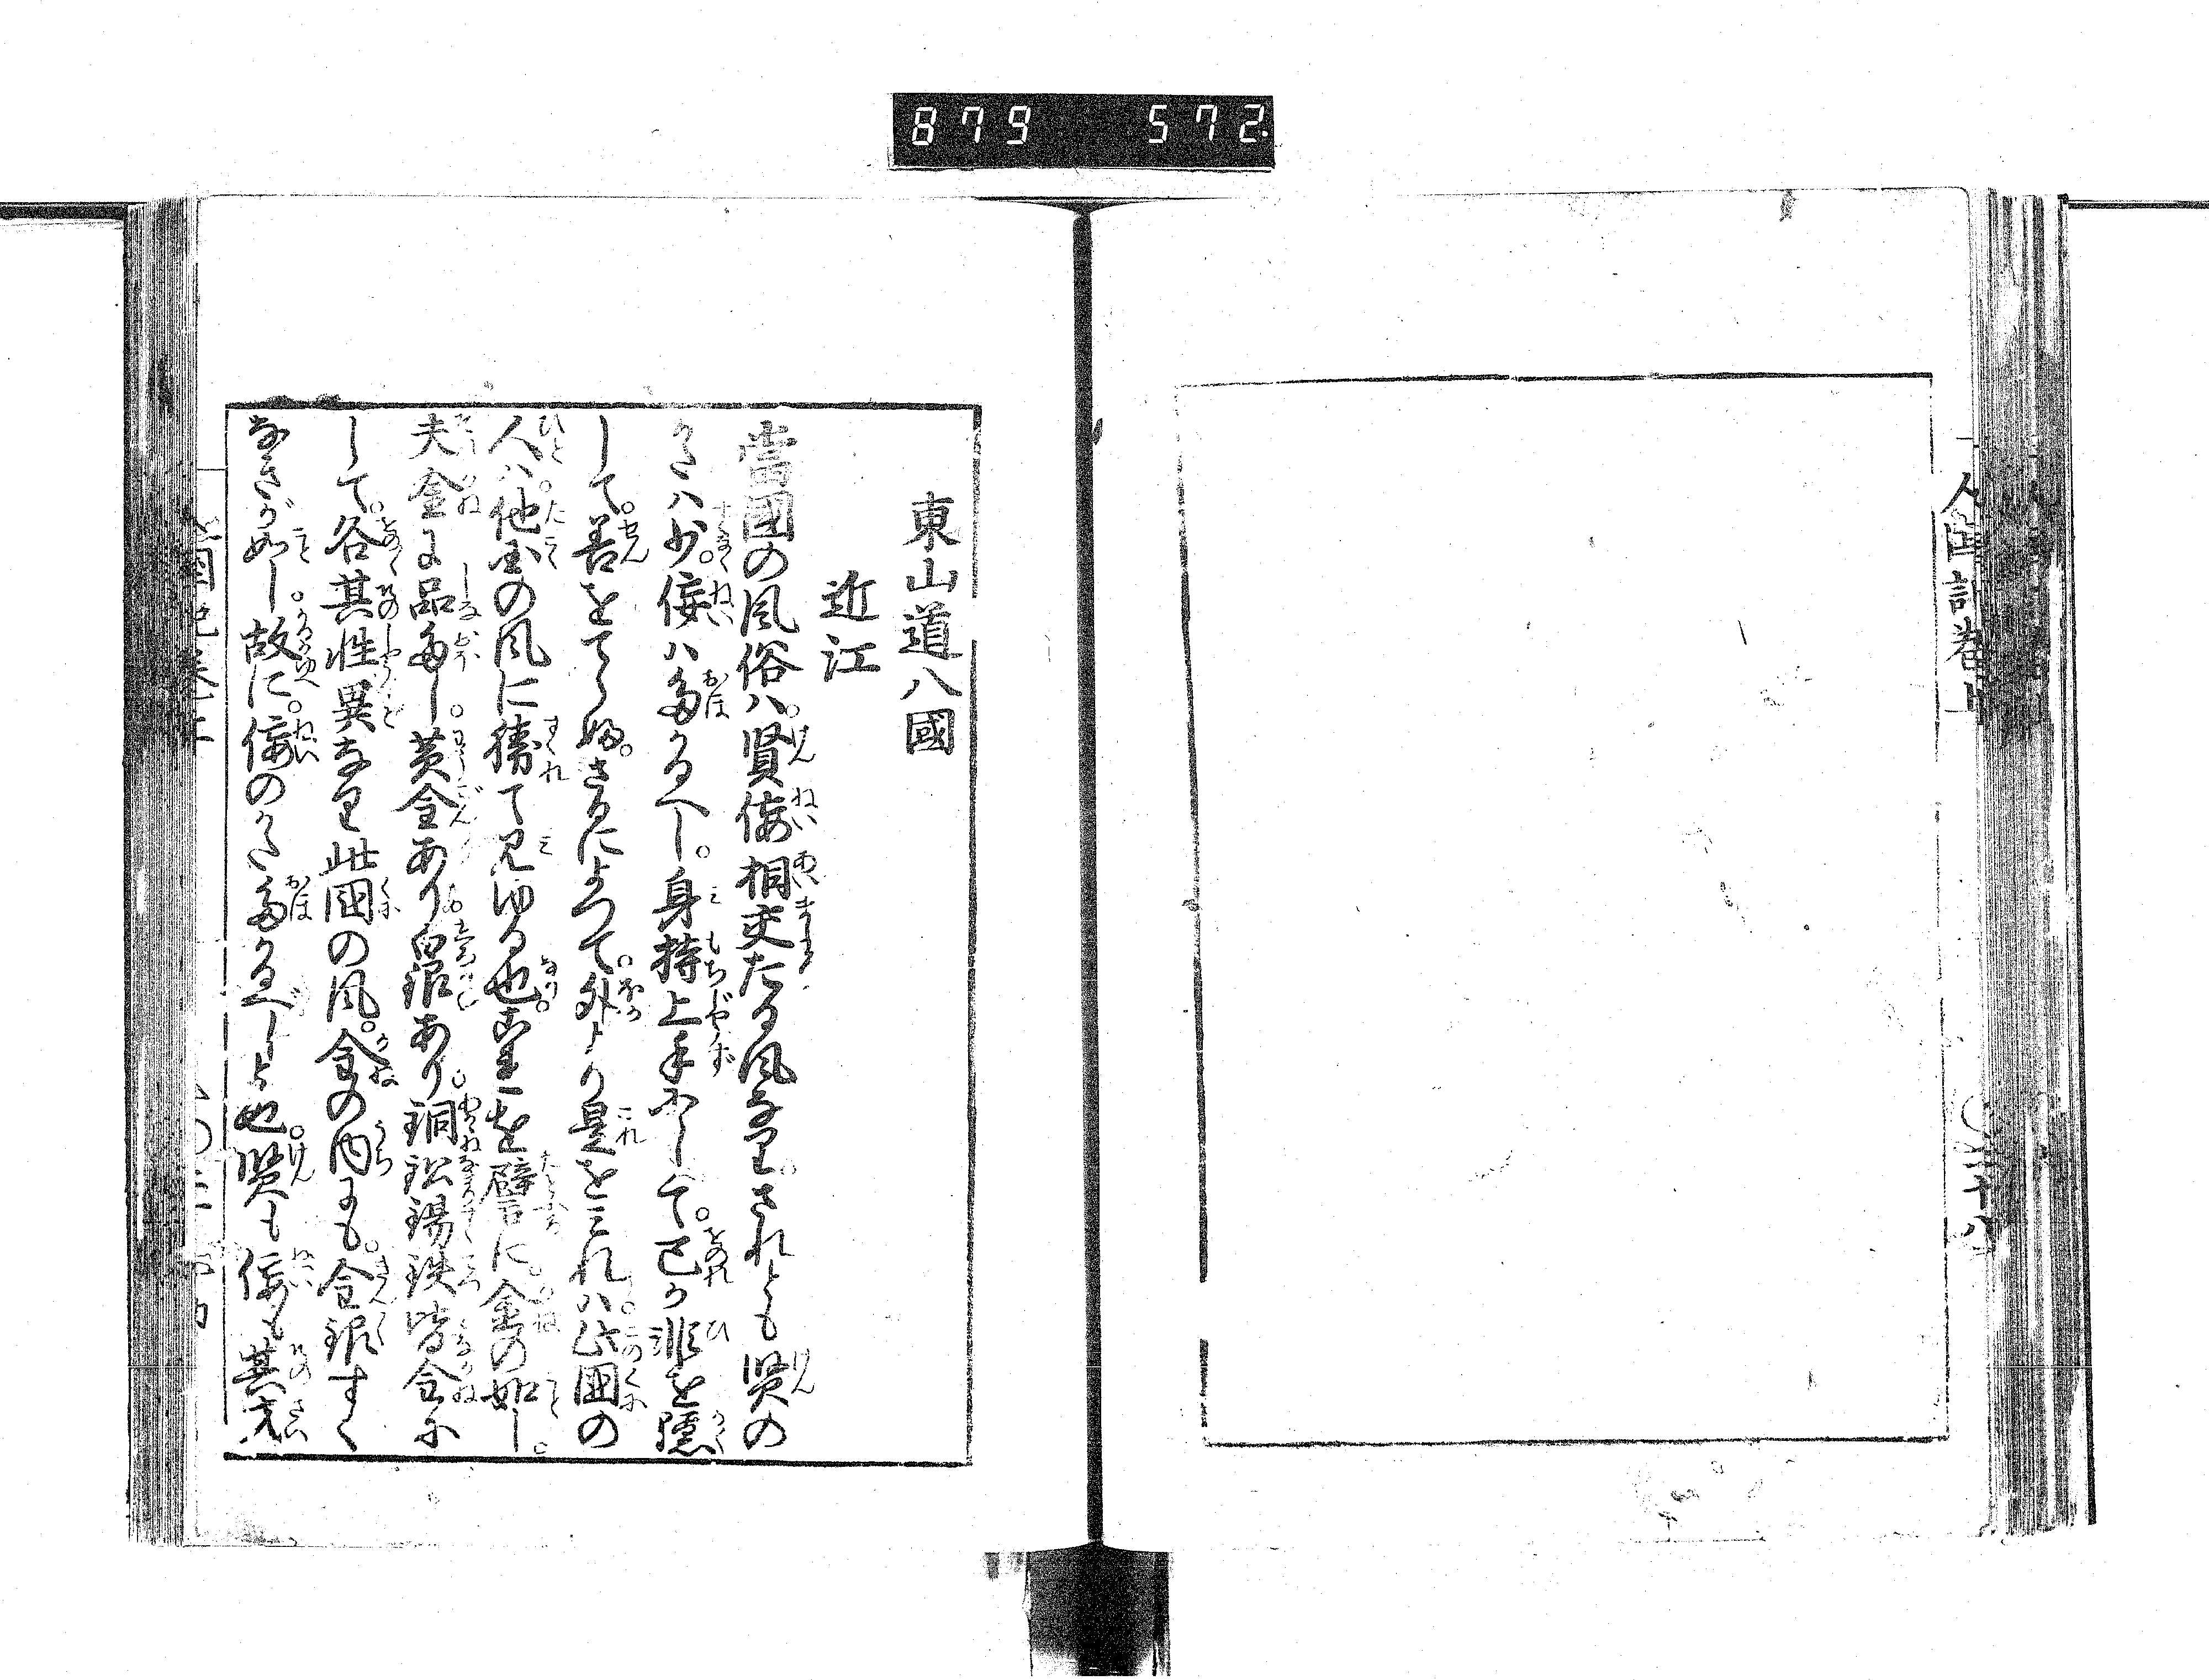 879 572
人國記卷上
三十八
東山道八國
近江
當國の風俗ハ。賢佞相交たる風なり。されとも賢の
かたハ少。佞ハ多かるへし。身持上手にして。己が非を隠
して。善をてらふ。さるによつて。外より是をミれハ。此国の
人ハ。他国の風に勝て見ゆる也。これを譬に。金の如し。
夫金に品多し。黄金あり白銀あり。銅鈆錫鉄皆金に
して。各其性異なり此国の風。金の内にも。金銀すく
なきが如し。故に。佞のかた多かるべしと也。賢も佞も其才